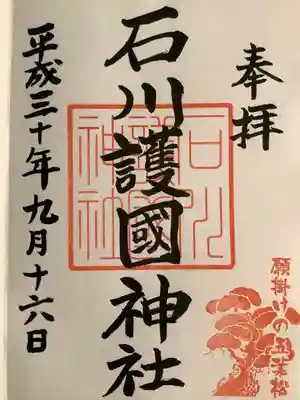 奉拝
石川護國神社
平成三十年九月十六日
願掛けの五葉松
石川
護國
神社